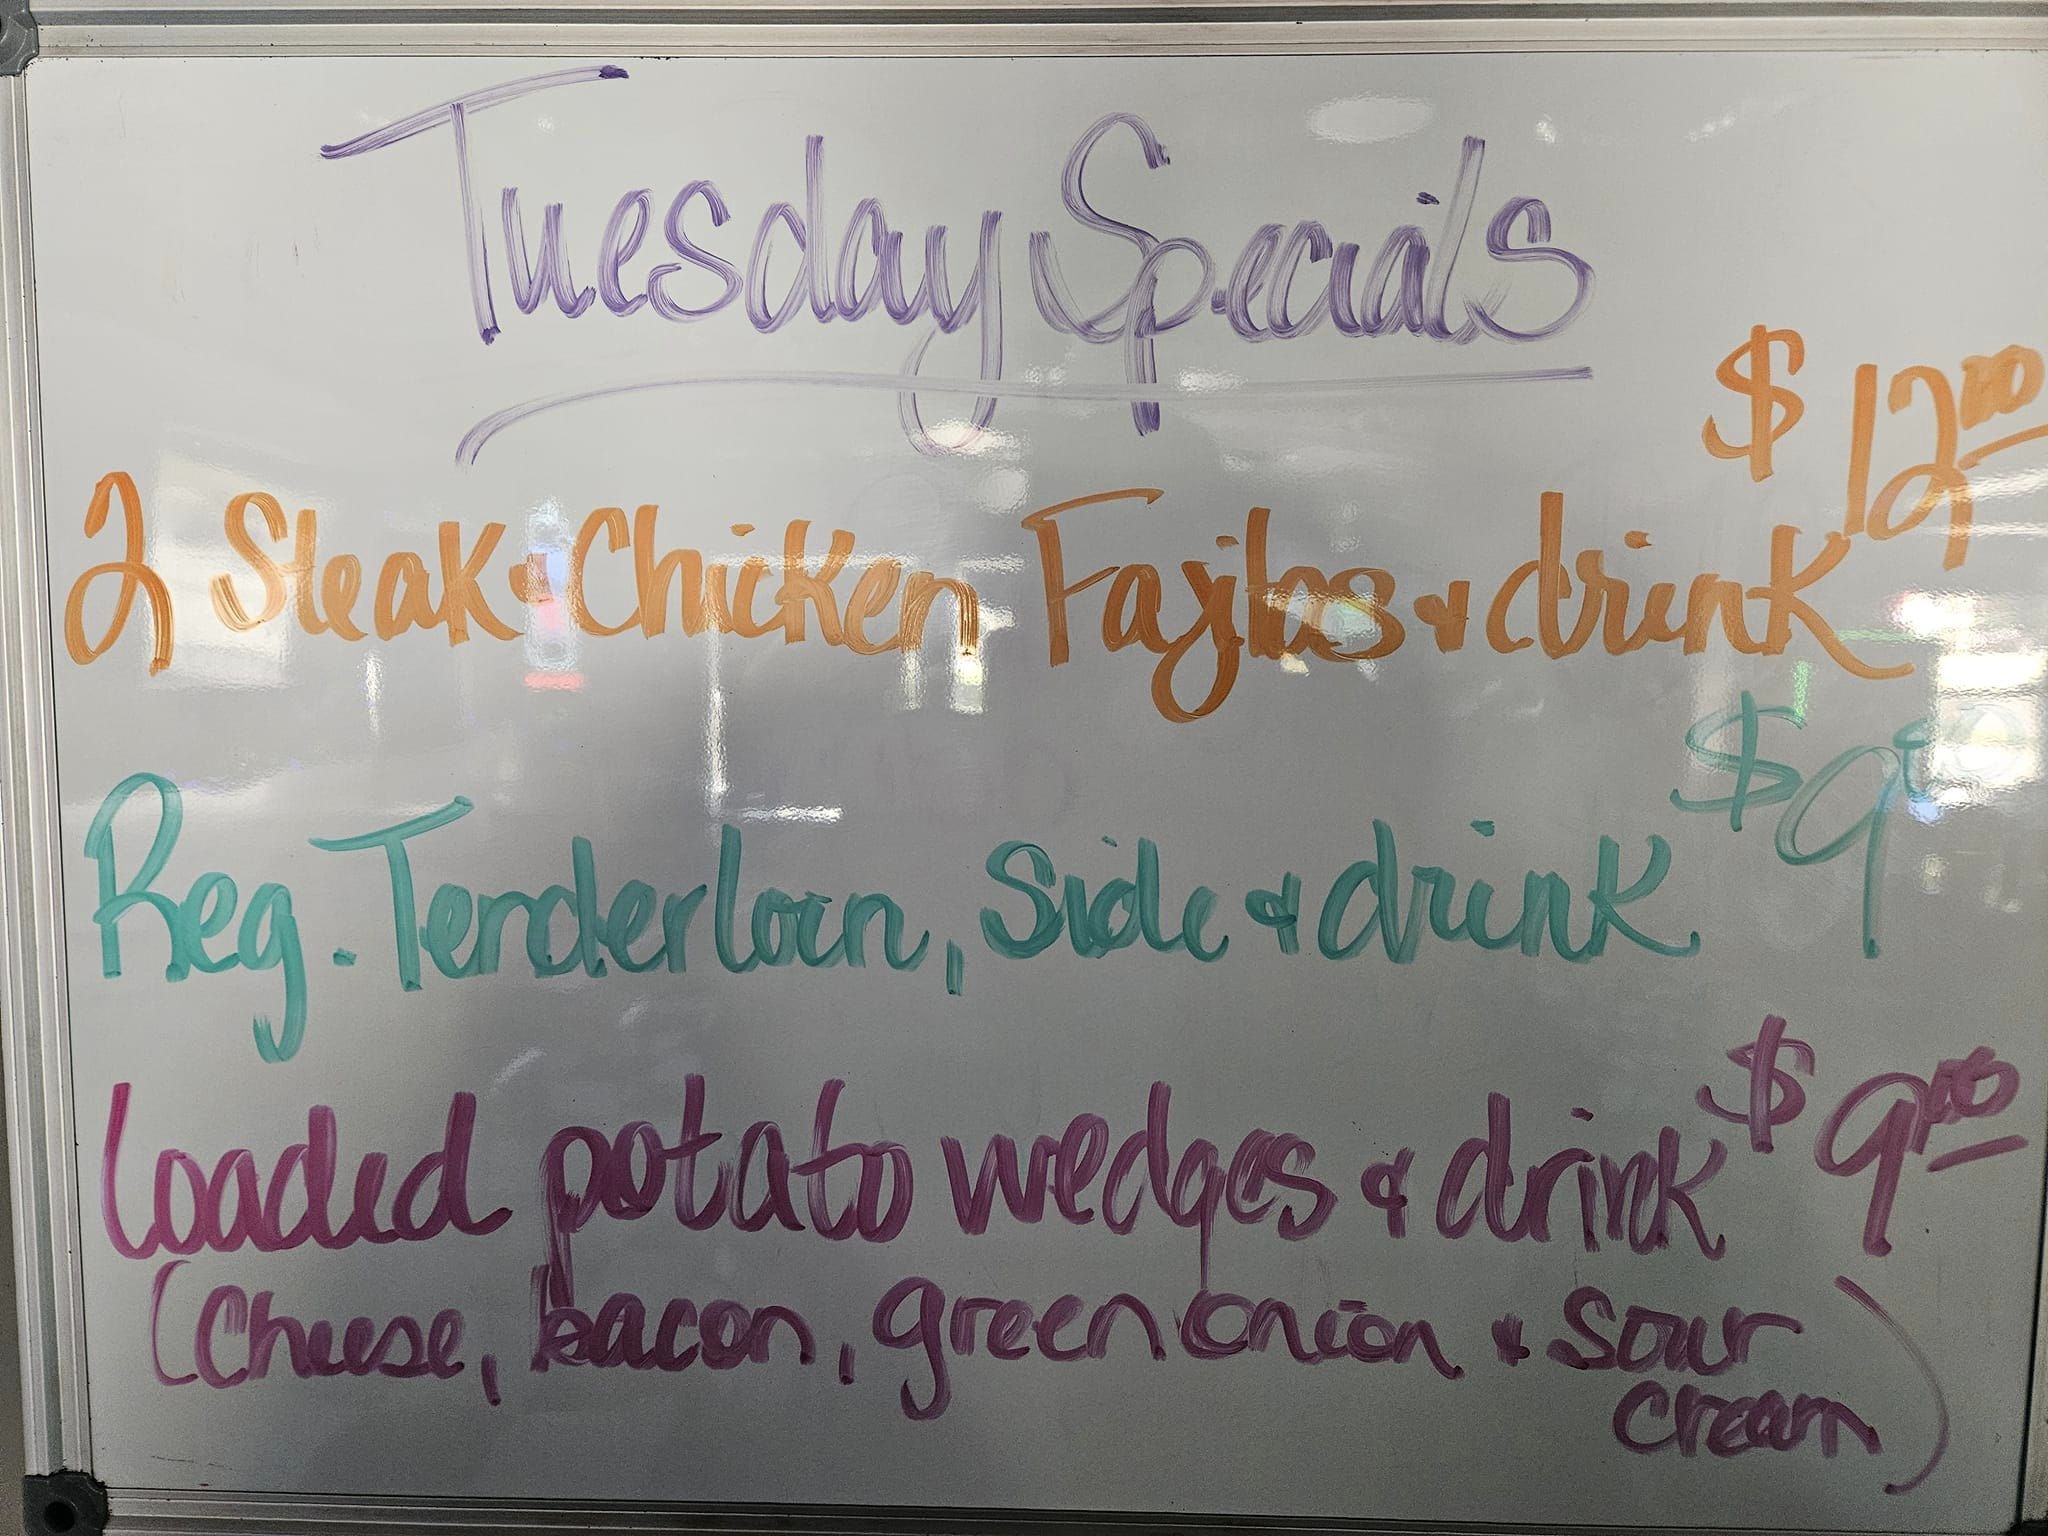 Tuesday Specials
$12.00
2 Steak & Chicken Fajitas & drink
$9.00
Reg. Tenderloin, Side & drink
$9.00
Loaded potato wedges & drink
(Cheese, bacon, green onion & sour
cream)